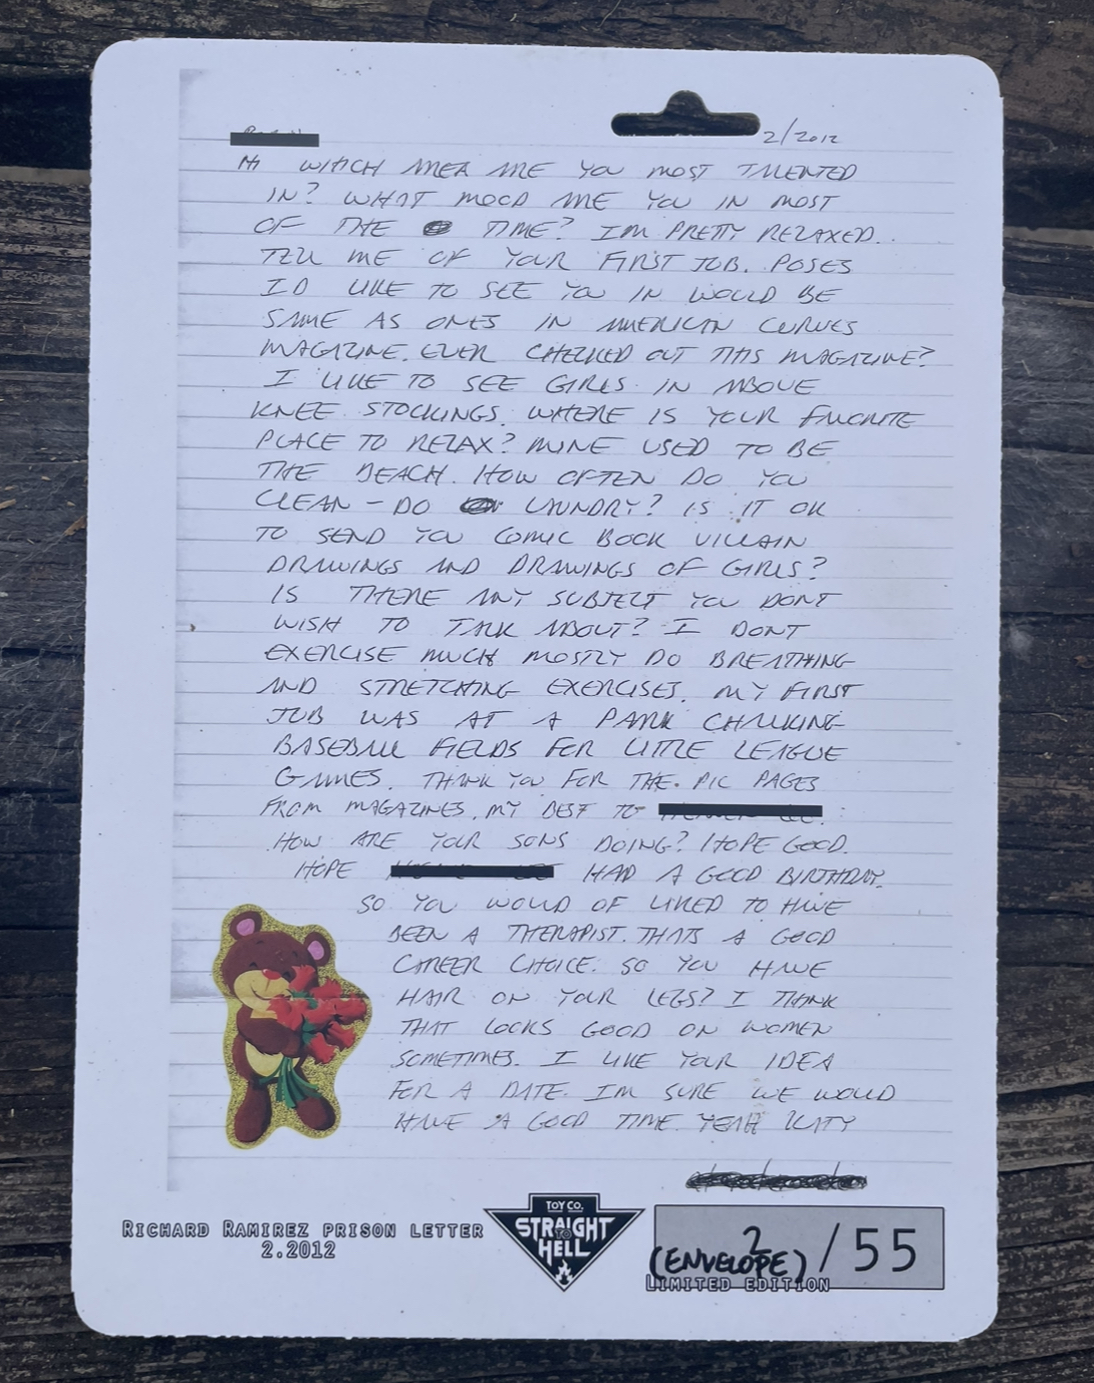 2/2012
HI WHICH AREA ARE YOU MOST TALENTED
IN? WHAT MOOD ARE YOU IN MOST
OF THE TIME? IM PRETTY RELAXED.
TELL ME OF YOUR FIRST JOB. POSES
ID LIKE TO SEE YOU IN WOULD BE
SAME AS ONES IN AMERICAN CURVES
MAGAZINE. EVER CHECKED OUT THIS MAGAZINE?
I LIKE TO SEE GIRLS IN ABOVE
KNEE STOCKINGS. WHERE IS YOUR FAVORITE
PLACE TO RELAX? MINE USED TO BE
THE BEACH. HOW OFTEN DO YOU
CLEAN - DO LAUNDRY? IS IT OK
TO SEND YOU COMIC BOOK VILLAIN
DRAWINGS AND DRAWINGS OF GIRLS?
IS THERE ANY SUBJECT YOU DONT
WISH TO TALK ABOUT? I DONT
EXERCISE MUCH MOSTLY DO BREATHING
AND STRETCHING EXERCISES. MY FIRST
JOB WAS AT A PARK CHALKING
BASEBALL FIELDS FOR LITTLE LEAGUE
GAMES. THANK YOU FOR THE PIC PAGES
FROM MAGAZINES. MY BEST TO
HOW ARE YOUR SONS DOING? HOPE GOOD.
HOPE HAD A GOOD BIRTHDAY.
SO YOU WOULD OF LIKED TO HAVE
BEEN A THERAPIST. THATS A GOOD
CAREER CHOICE. SO YOU HAVE
HAIR ON YOUR LEGS? I THINK
THAT LOOKS GOOD ON WOMEN
SOMETIMES. I LIKE YOUR IDEA
FOR A DATE. IM SURE WE WOULD
HAVE A GOOD TIME. YEAH KATY
RICHARD RAMIREZ PRISON LETTER
2.2012
TOY CO.
STRAIGHT
TO
HELL
2/55
(ENVELOPE)
LIMITED EDITION